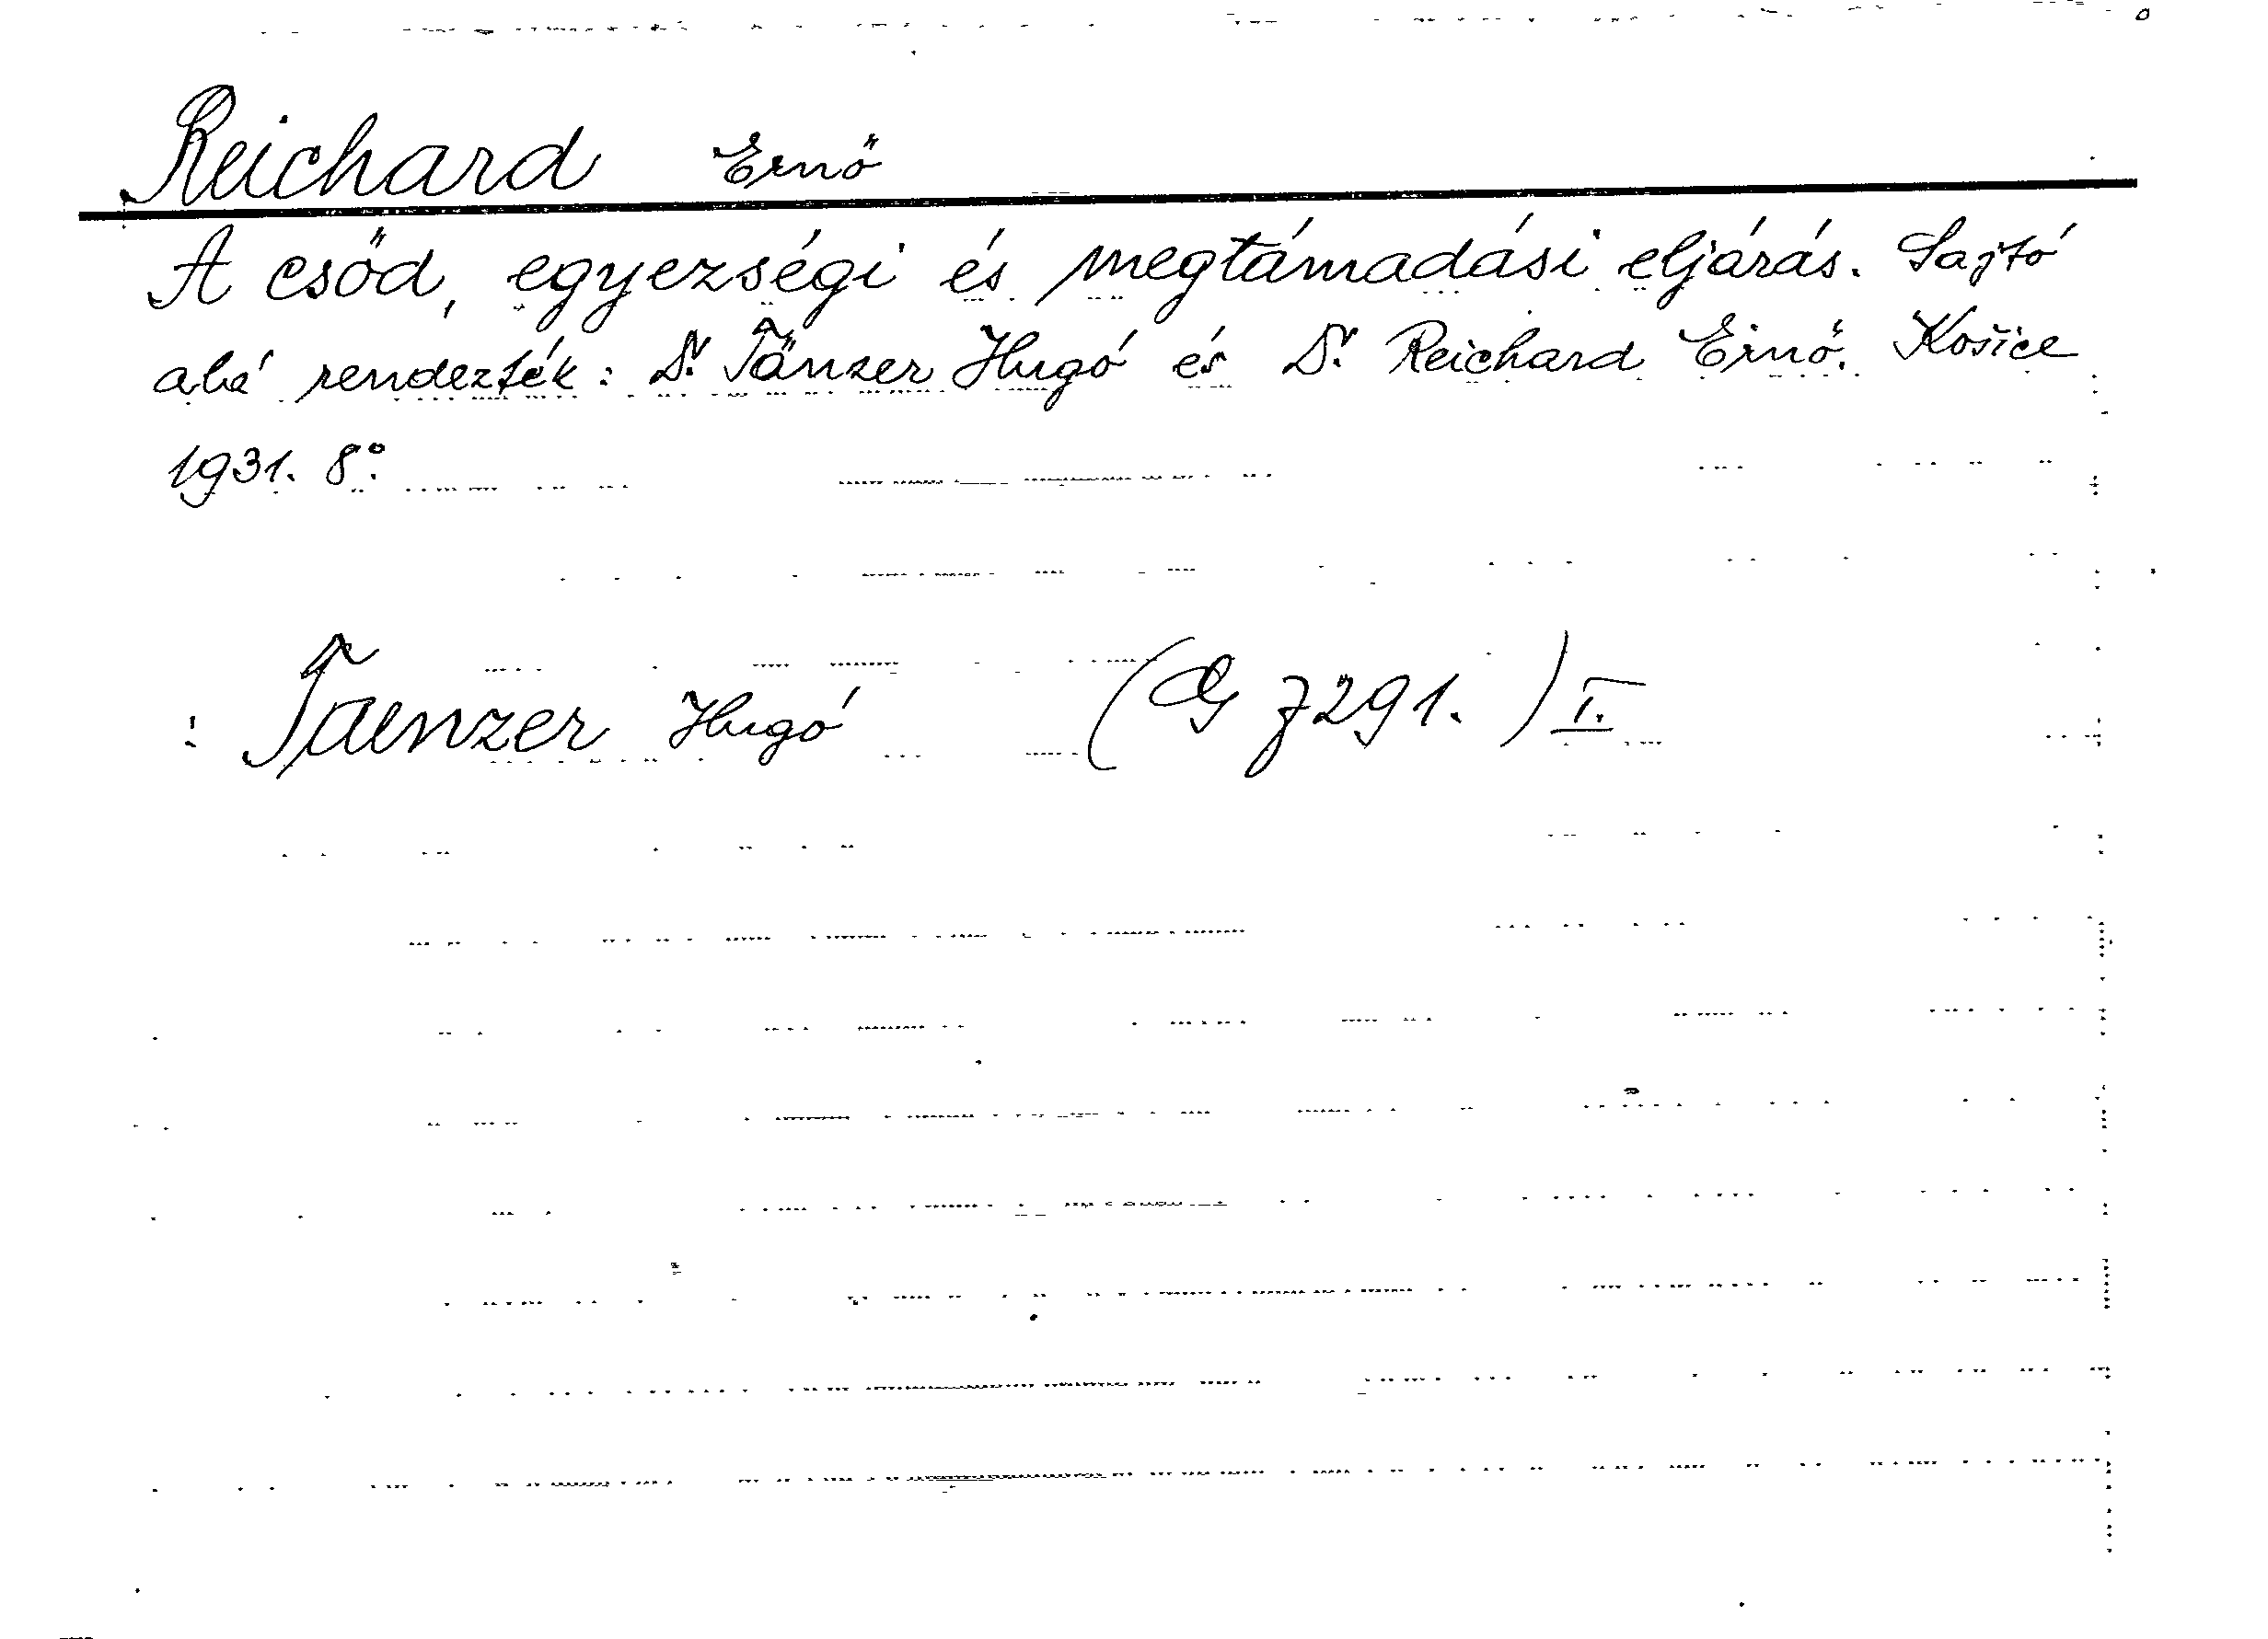 Reichard Ernő
A csőd, egyezségi és megtámadási eljárás. Sajtó
alá rendezték: Dr. Tänzer Hugó és Dr. Reichard Ernő. Košice
1931. 8°.
: Taenzer Hugó ( 7291. ) I.